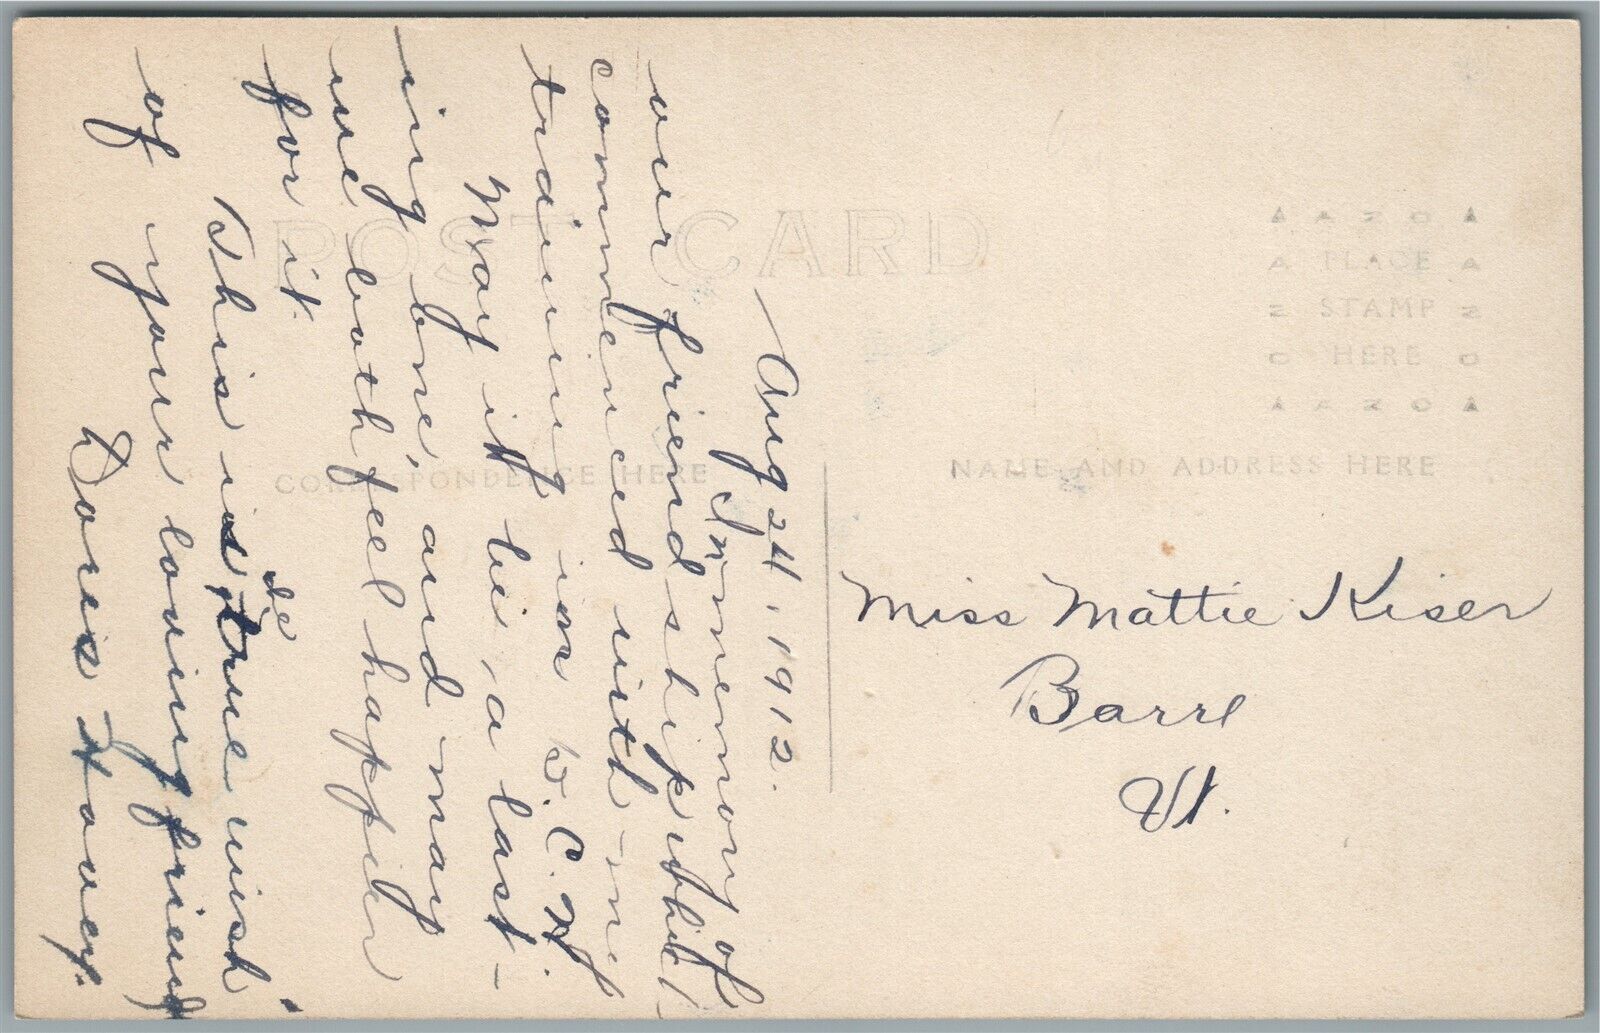 POST CARD
CORRESPONDENCE HERE
NAME AND ADDRESS HERE
AZO
PLACE
STAMP
HERE
AZO
Aug 24, 1912.
In memory of
our friendship which
commenced with my
training in H.
May it be, a last-
ing one, and may
we both feel happier
for it.
This is the true wish
of your loving friend
Doris Hovey.
Miss Mattie Kiser
Barre
Vt.